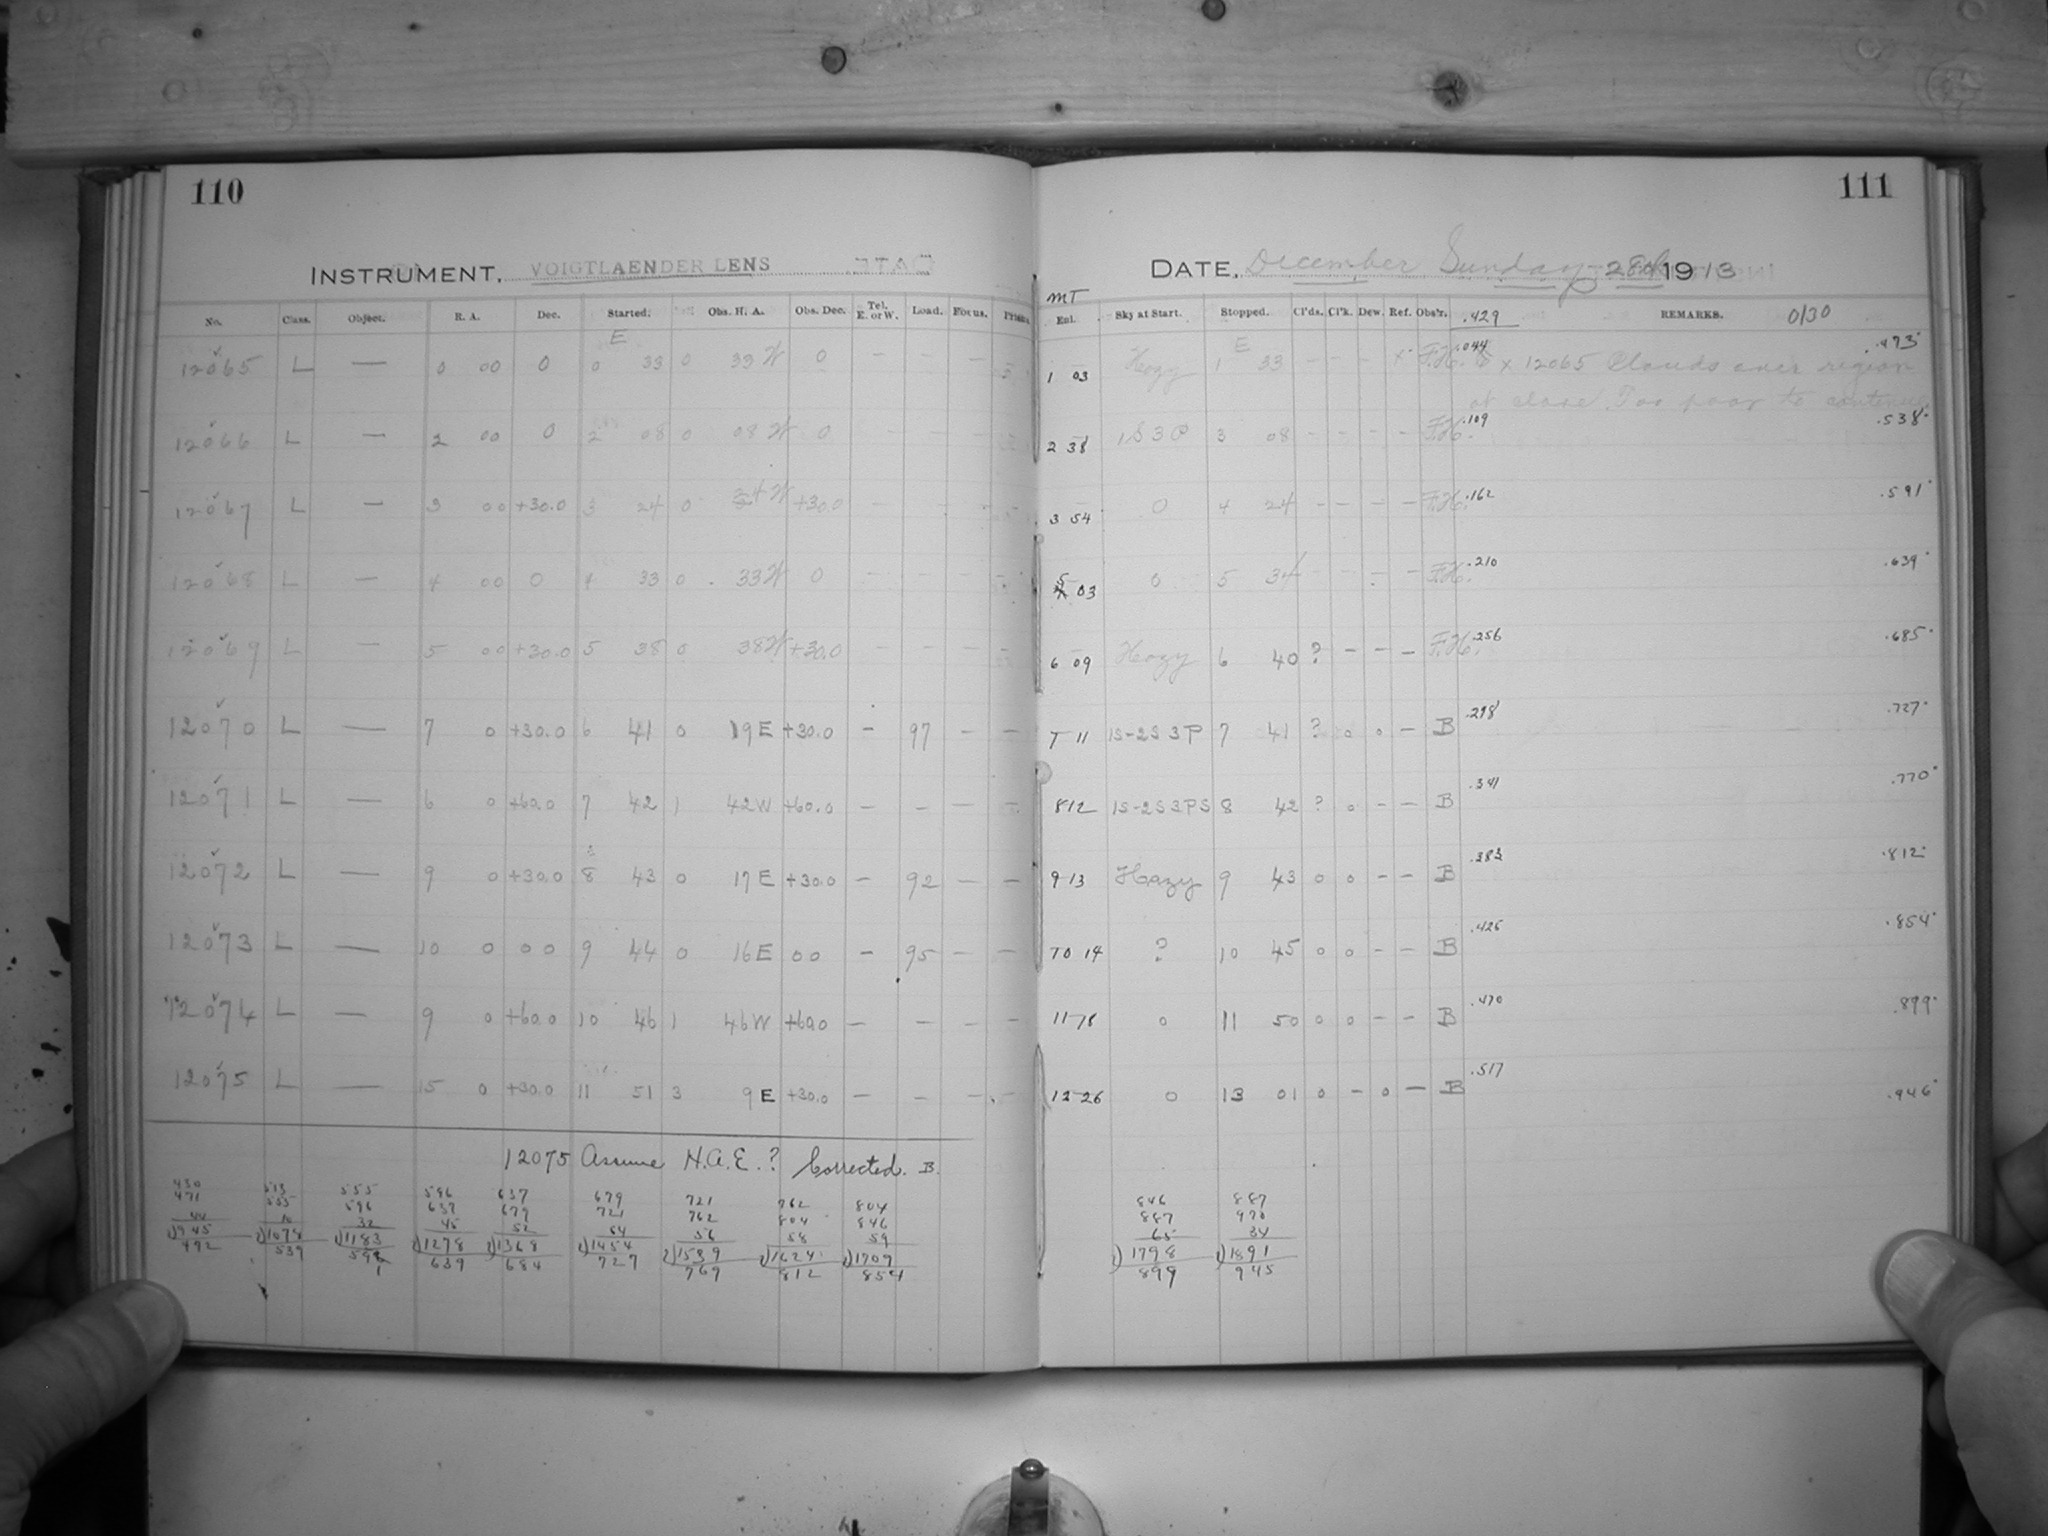 110
INSTRUMENT, VOIGTLAENDER LENS
No. Class. Object. R. A. Dec. Started. Obs. H. A. Obs. Dec. Tel. E. or W. Load. Focus.
E
12065 L — 0 00 0 0 33 0 33 W 0 — — —
12066 L — 2 00 0 2 08 0 08 W 0 — — —
12067 L — 3 00 +30.0 3 24 0 24 W +30.0 — — —
12068 L — 4 00 0 4 33 0 33 W 0 — — —
12069 L — 5 00 +30.0 5 38 0 38 W +30.0 — — —
12070 L — 7 0 +30.0 6 41 0 19 E +30.0 — 97 — —
12071 L — 6 0 +60.0 7 42 1 42 W +60.0 — — — —
12072 L — 9 0 +30.0 8 43 0 17 E +30.0 — 92 — —
12073 L — 10 0 0 0 9 44 0 16 E 0 0 — 95 — —
12074 L — 9 0 +60.0 10 46 1 46 W +60.0 — — — —
12075 L — 15 0 +30.0 11 51 3 9 E +30.0 — — — —
12075 Assume H.A.E.? Corrected. B.
430 513 555 596 637 679 721 762 804
471 555 596 637 679 721 762 804 846
44 10 32 45 52 54 56 58 59
2)945 2)1078 2)1183 2)1278 2)1368 2)1454 2)1539 2)1624 2)1709
472 539 591 639 684 727 769 812 854
111
DATE, December Sunday 28th 1913
MT
Enl. Sky at Start. Stopped. Cl'ds. Cl'k. Dew. Ref. Obs'r. .429 REMARKS. 0130
E
1 03 Hazy 1 33 — — — x F.H. .044 x 12065 Clouds over region .473
at close. Too poor to continue
2 38 1S3P 3 08 — — — — F.H. .109 .538
3 54 0 4 24 — — — — F.H. .162 .591
5 03 0 5 34 — — — — F.H. .210 .639
6 09 Hazy 6 40 ? — — — F.H. .256 .685
7 11 1S-2S3P 7 41 ? 0 0 — B .298 .727
8 12 1S-2S3PS 8 42 ? 0 — — B .341 .770
9 13 Hazy 9 43 0 0 — — B .383 .812
10 14 ? 10 45 0 0 — — B .426 .854
11 18 0 11 50 0 0 — — B .470 .899
12 26 0 13 01 0 — 0 — B .517 .946
846 887
887 970
65 34
2)1798 2)1891
899 945